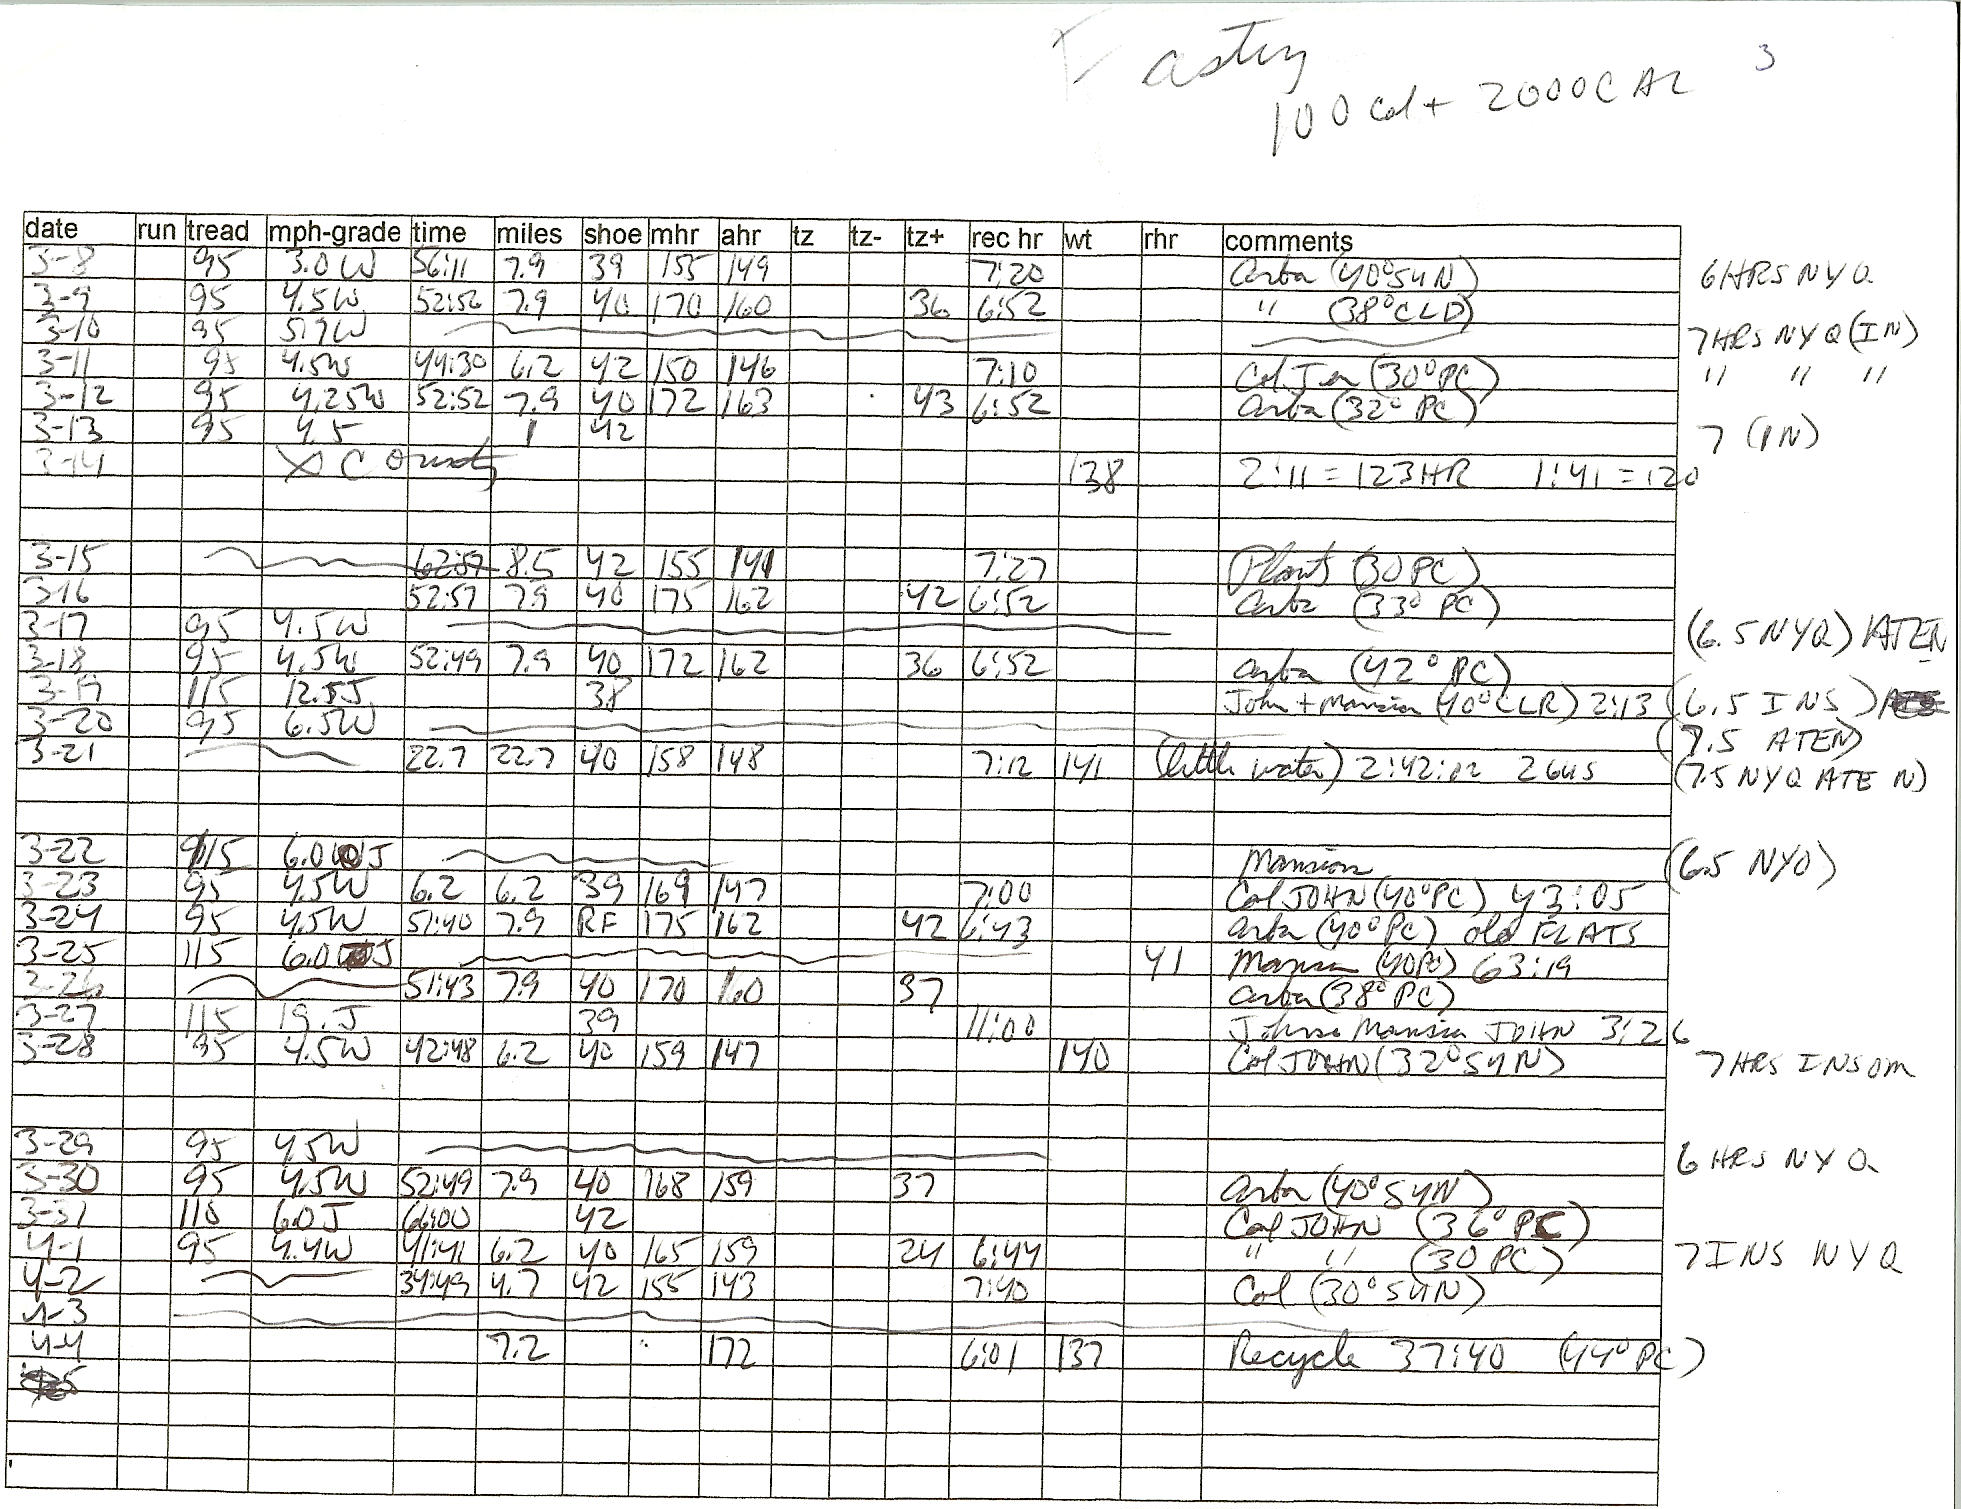 3
100 Cal + 2000 CAL
date run tread mph-grade time miles shoe mhr ahr tz tz- tz+ rec hr wt rhr comments
3-8 95 3.0W 56:11 7.9 39 155 149 7:20 Arba (40° SUN) 6 HRS NYQ
3-9 95 4.5W 52:52 7.9 40 170 160 36 6:52 " (38° CLD)
3-10 95 5.7W 7 HRS NYQ (IN)
3-11 95 4.5W 44:30 6.2 42 150 146 7:10 Col (30° PC) " " "
3-12 95 4.25W 52:52 7.9 40 172 163 43 6:52 Arba (32° PC)
3-13 95 4.5 1 42 7 (IN)
3-14 X Country 138 2:11 = 123HR 1:41 = 120
3-15 62:57 8.5 42 155 141 7:27 Plants (30 PC)
3-16 52:57 7.9 40 175 162 42 6:52 Arba (33° PC)
3-17 95 4.5W (6.5 NYQ) ATEN
3-18 95 4.5W 52:49 7.9 40 172 162 36 6:52 Arba (42° PC)
3-19 115 12.5J 38 John + Mansion (40° CLR) 2:13 (6.5 INS)
3-20 95 6.5W (7.5 ATEN)
3-21 22.7 22.7 40 158 148 7:12 141 (little water) 2:42:02 2 GUS (7.5 NYQ ATEN)
3-22 115 6.0 J Mansion (6.5 NYQ)
3-23 95 4.5W 6.2 6.2 39 169 147 7:00 Col JOHN (40° PC) 43:05
3-24 95 4.5W 51:40 7.9 RF 175 162 42 6:43 Arba (40° PC) old FLATS
3-25 115 6.0 J 41 Mansion (40 PC) 63:19
51:43 7.9 40 170 160 37 Arba (38° PC)
3-27 115 19.J 39 11:00 Mansion JOHN 3:26
3-28 95 4.5W 42:48 6.2 40 159 147 140 Col JOHN (32° SUN) 7 HRS INSOM
3-29 95 4.5W 6 HRS NYQ
3-30 95 4.5W 52:49 7.9 40 168 159 37 Arba (40° SUN)
3-31 6.0J 66:00 42 Col JOHN (36° PC)
4-1 95 4.4W 41:41 6.2 40 165 159 24 6:44 " " (30 PC) 7 INS NYQ
4-2 34:49 4.7 42 155 143 7:40 Col (30° SUN)
4-3
4-4 7.2 172 6:01 137 Recycle 37:40 (44° PC)